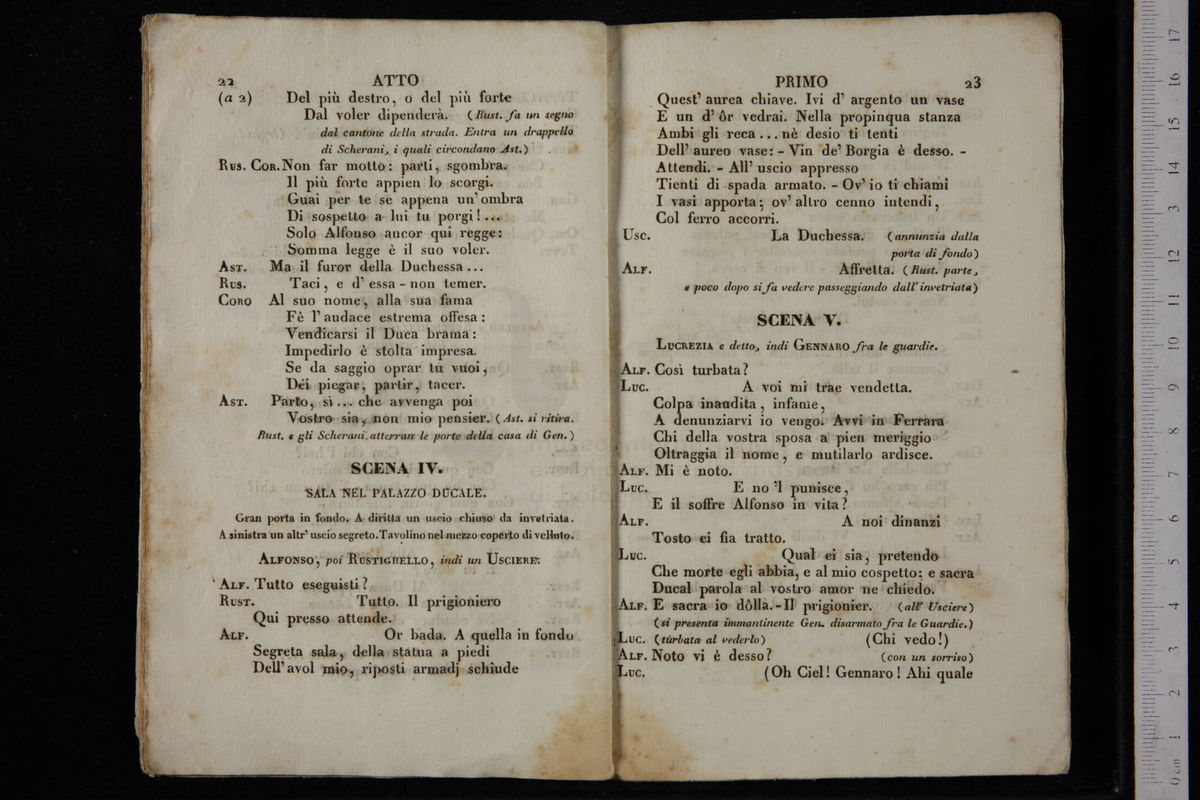 22 ATTO
(a 2) Del più destro, o del più forte
Dal voler dipenderà. (Rust. fa un segno
dal cantone della strada. Entra un drappello
di Scherani, i quali circondano Ast.)
Rus. Cor. Non far motto: parti, sgombra.
Il più forte appien lo scorgi.
Guai per te se appena un' ombra
Di sospetto a lui tu porgi!...
Solo Alfonso ancor qui regge:
Somma legge è il suo voler.
Ast. Ma il furor della Duchessa...
Rus. Taci, e d' essa - non temer.
Coro Al suo nome, alla sua fama
Fè l' audace estrema offesa:
Vendicarsi il Duca brama:
Impedirlo è stolta impresa.
Se da saggio oprar tu vuoi,
Déi piegar, partir, tacer.
Ast. Parto, sì... che avvenga poi
Vostro sia, non mio pensier. (Ast. si ritira.
Rust. e gli Scherani atterran le porte della casa di Gen.)
SCENA IV.
SALA NEL PALAZZO DUCALE.
Gran porta in fondo. A diritta un uscio chiuso da invetriata.
A sinistra un altr' uscio segreto. Tavolino nel mezzo coperto di velluto.
Alfonso, poi Rustighello, indi un Usciere.
Alf. Tutto eseguisti?
Rust. Tutto. Il prigioniero
Qui presso attende.
Alf. Or bada. A quella in fondo
Segreta sala, della statua a piedi
Dell' avol mio, riposti armadj schiude
PRIMO 23
Quest' aurea chiave. Ivi d' argento un vase
E un d' ôr vedrai. Nella propinqua stanza
Ambi gli reca... nè desio ti tenti
Dell' aureo vase: - Vin de' Borgia è desso. -
Attendi. - All' uscio appresso
Tienti di spada armato. - Ov' io ti chiami
I vasi apporta; ov' altro cenno intendi,
Col ferro accorri.
Usc. La Duchessa. (annunzia dalla
porta di fondo)
Alf. Affretta. (Rust. parte,
e poco dopo si fa vedere passeggiando dall' invetriata)
SCENA V.
Lucrezia e detto, indi Gennaro fra le guardie.
Alf. Così turbata?
Luc. A voi mi trae vendetta.
Colpa inaudita, infame,
A denunziarvi io vengo. Avvi in Ferrara
Chi della vostra sposa a pien meriggio
Oltraggia il nome, e mutilarlo ardisce.
Alf. Mi è noto.
Luc. E no 'l punisce,
E il soffre Alfonso in vita?
Alf. A noi dinanzi
Tosto ei fia tratto.
Luc. Qual ei sia, pretendo
Che morte egli abbia, e al mio cospetto; e sacra
Ducal parola al vostro amor ne chiedo.
Alf. E sacra io dôlla. - Il prigionier. (all' Usciere)
(si presenta immantinente Gen. disarmato fra le Guardie.)
Luc. (turbata al vederlo) (Chi vedo!)
Alf. Noto vi è desso? (con un sorriso)
Luc. (Oh Ciel! Gennaro! Ahi quale
0 cm 1 2 3 4 5 6 7 8 9 10 11 12 13 14 15 16 17